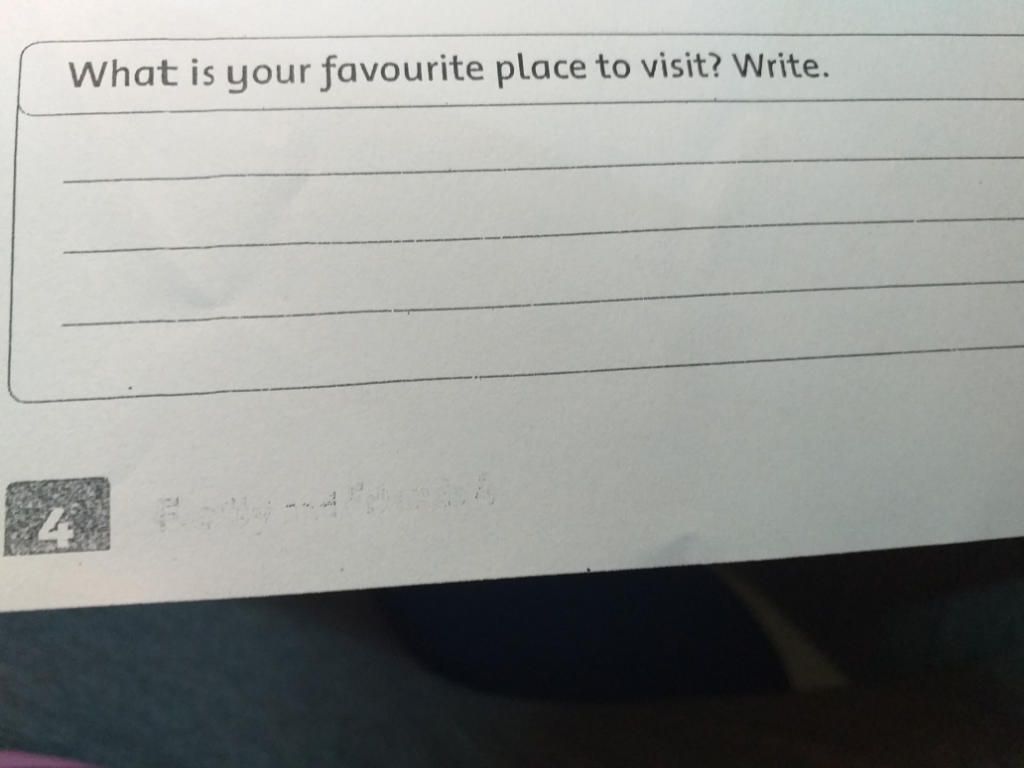 What is your favourite place to visit? Write.
4